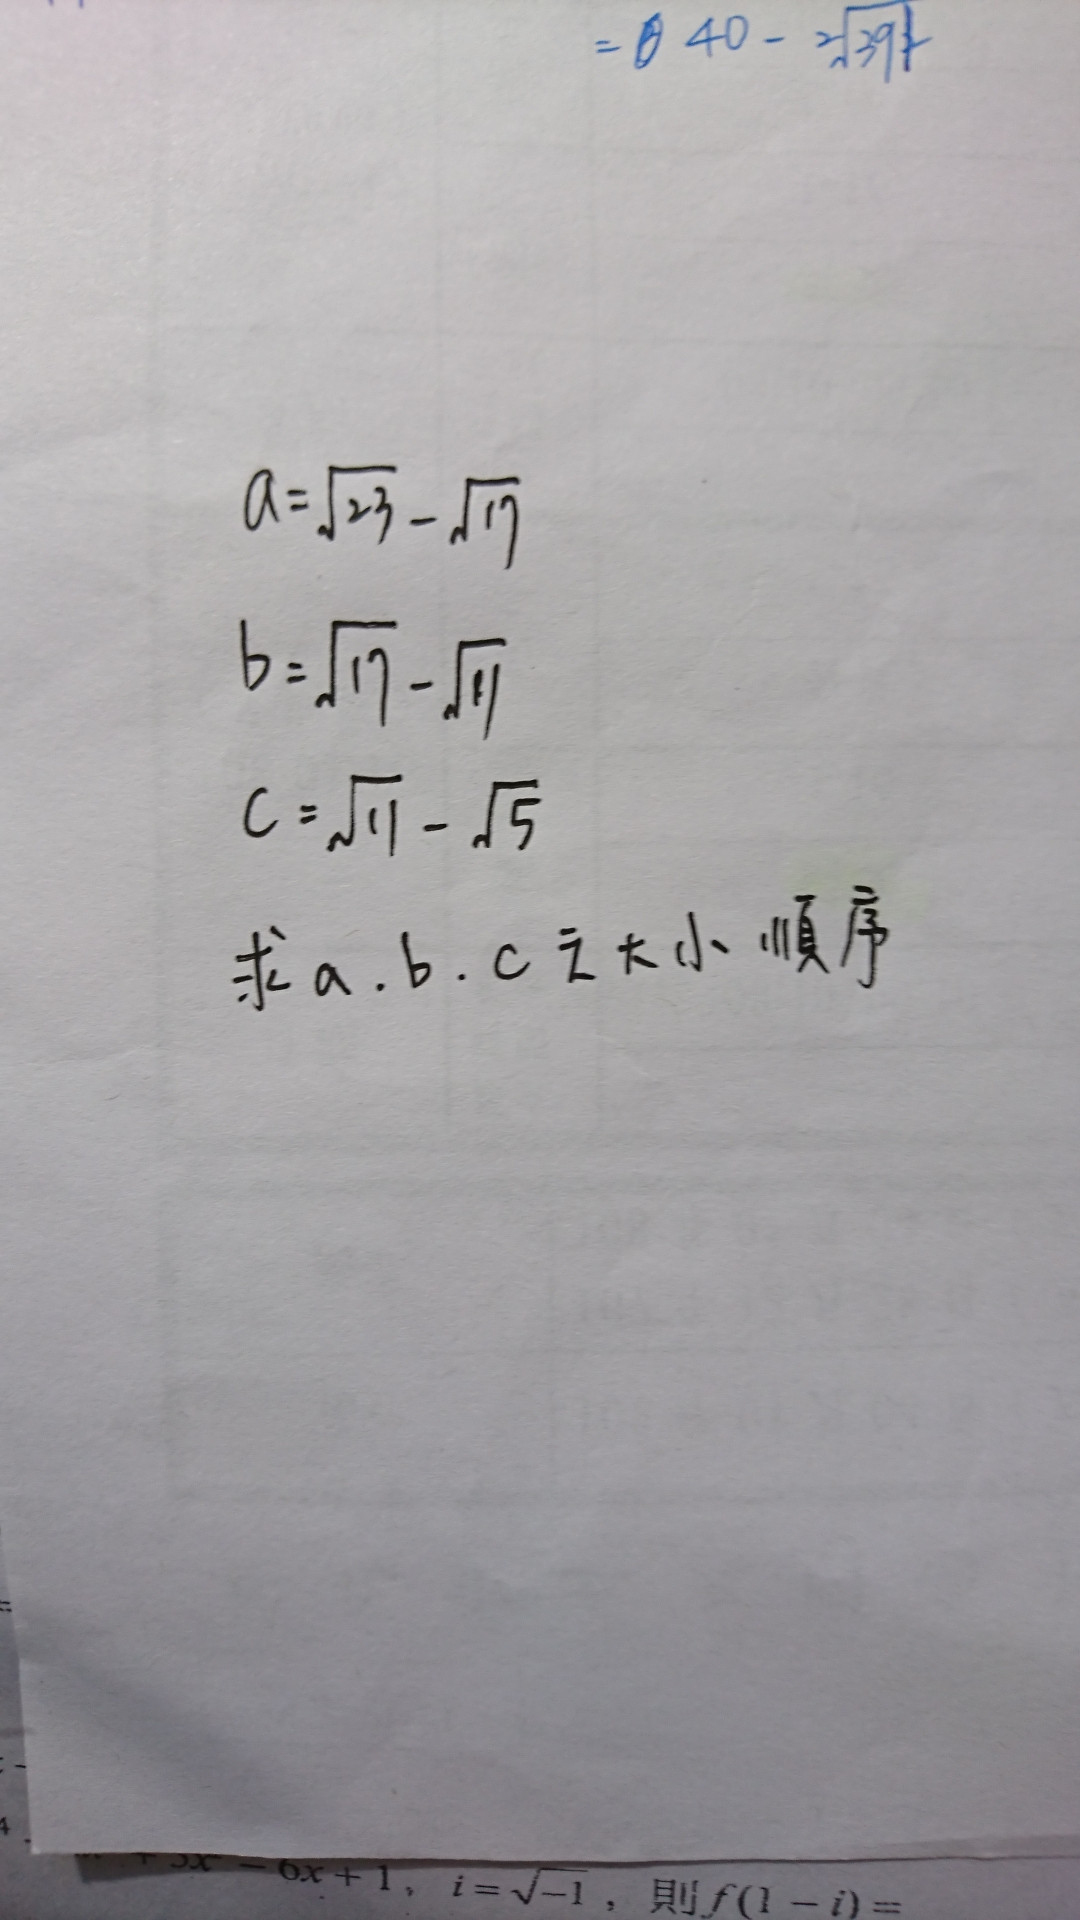 = 40 - 2√391
a=√23-√17
b=√17-√11
c=√11-√5
求a.b.c之大小順序
- 6x + 1, i = √-1, 則f(1 - i) =